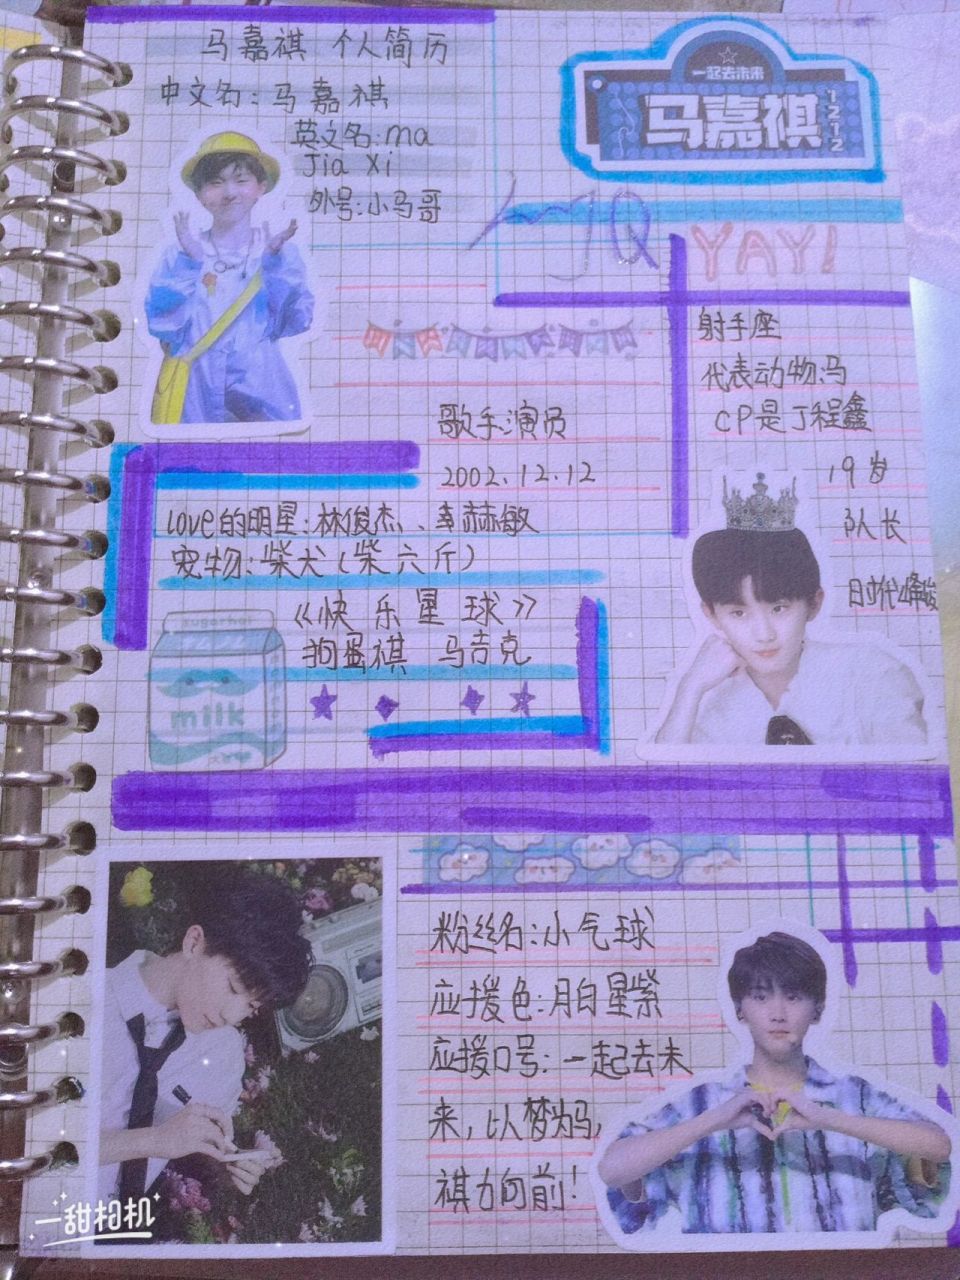 马嘉祺 个人简历
中文名:马嘉祺
英文名:ma
Jia Xi
外号:小马哥
一起去未来
马嘉祺
1212
MJQ
YAY!
射手座
代表动物:马
CP是丁程鑫
歌手.演员
2002.12.12
19岁
队长
love的明星:林俊杰、李赫敏
宠物:柴犬(柴六斤)
《快乐星球》
狗蛋祺 马吉克
milk
粉丝名:小气球
应援色:月白星紫
应援口号:一起去未
来,以梦为马,
祺力向前!
一甜相机